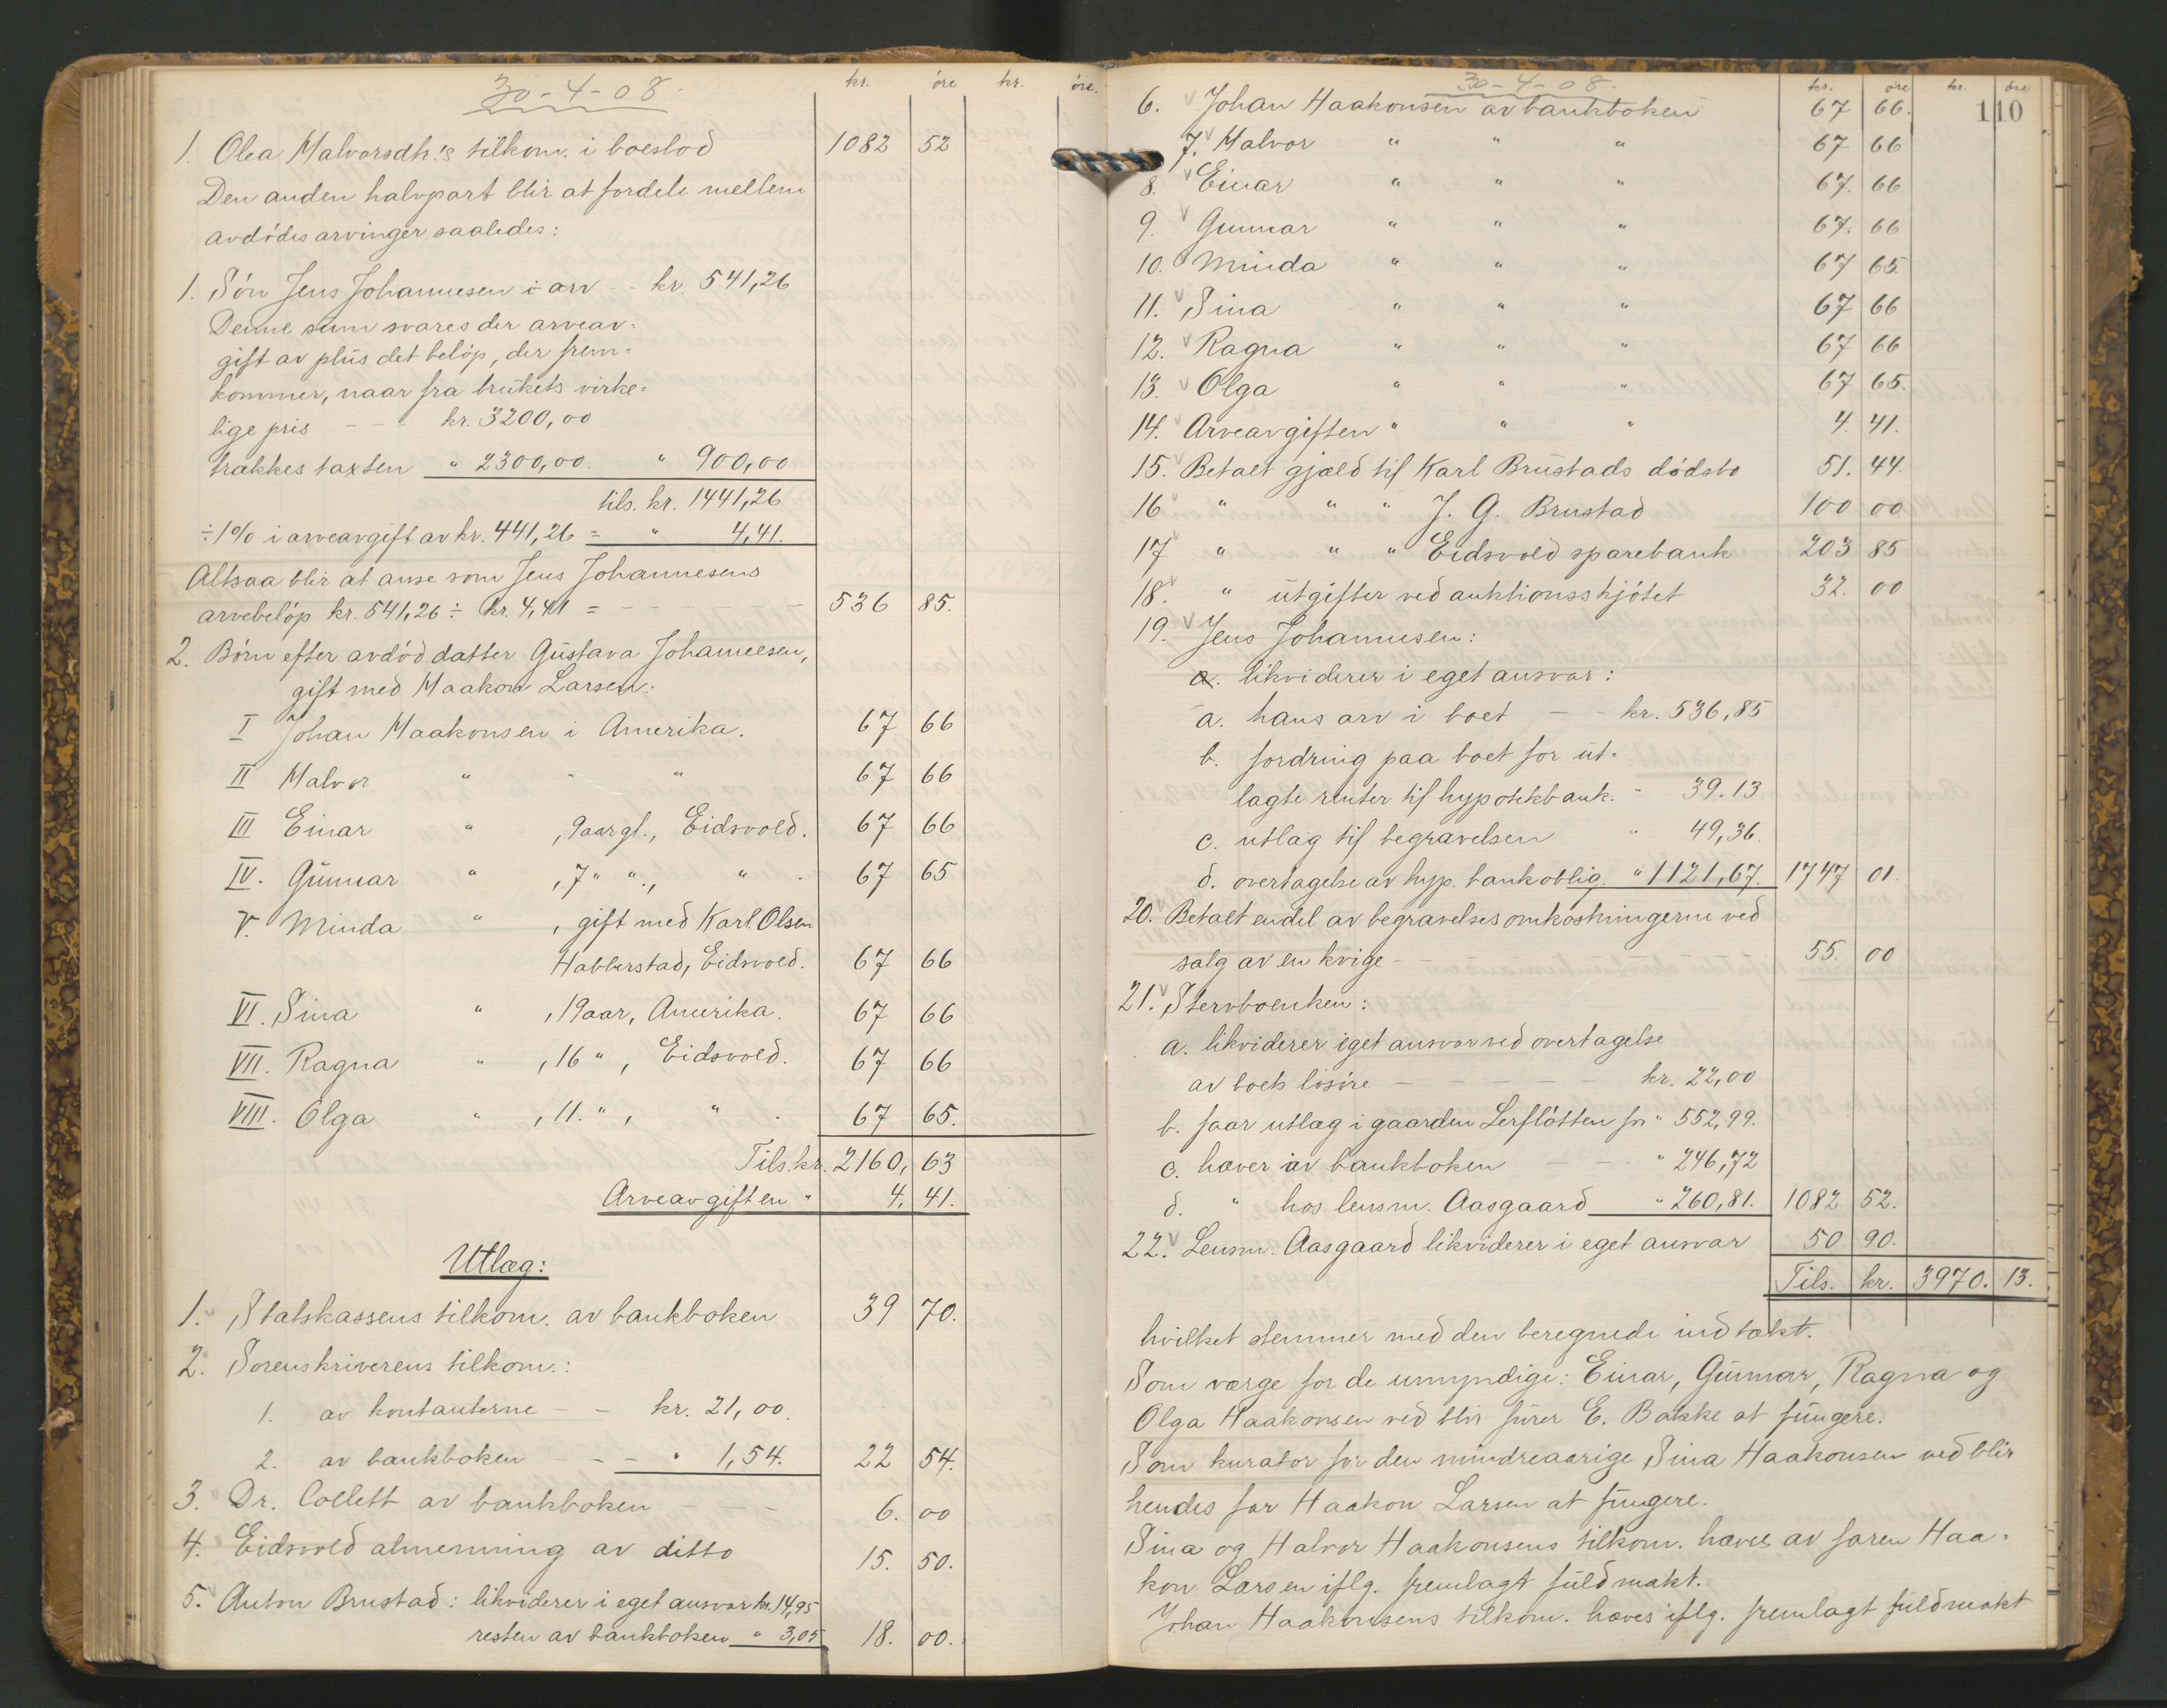 30-4-08.
kr. øre kr. øre.
1. Olea Halvorsdtr.'s tilkom. i boeslod 1082 52
Den anden halvpart blir at fordele mellem
avdødes arvinger saaledes:
1. Søn Jens Johannesen i arv - - kr. 541,26
Denne sum svares der arveav-
gift av plus det beløp, der frem-
kommer, naar fra brukets virke-
lige pris - - - kr. 3200,00
trækkes taxten " 2300,00. " 900,00
tils. kr. 1441,26
÷ 1% i arveavgift av kr. 441,26 = " 4,41.
Altsaa blir at anse som Jens Johannesens
arvebeløp kr. 541,26 ÷ kr. 4,41 = - - - - - - 536 85.
2. Børn efter avdød datter Gustava Johannesen,
gift med Haakon Larsen:
I Johan Haakonsen i Amerika. 67 66
II Halvor " " " 67 66
III Einar " , 9 aar gl., Eidsvold. 67 66
IV. Gunnar " , 7 " "., " . 67 65
V. Minda " , gift med Karl Olsen
Habberstad, Eidsvold. 67 66
VI. Sina " , 19 aar, Amerika. 67 66
VII. Ragna " , 16 " , Eidsvold. 67 66
VIII. Olga " , 11. " , " . 67 65.
Tils. kr. 2160, 63
Arveavgiften " 4, 41.
Utlæg:
1. Statskassens tilkom. av bankboken 39 70.
2. Sorenskriverens tilkom.:
1. av kontanterne - - kr. 21,00.
2. av bankboken - - - " 1,54. 22 54.
3. Dr. Collett av bankboken - - - 6. 00
4. Eidsvold almenning av ditto 15. 50.
5. Anton Brustad: likviderer i eget ansvar kr. 14,95
resten av bankboken " 3,05 18. 00.
30-4-08.
kr. øre kr. øre
110
6. Johan Haakonsen av bankboken 67 66.
7. Halvor " " " 67 66
8. Einar " " " 67. 66
9. Gunnar " " " 67. 66
10. Minda " " " 67 65.
11. Sina " " " 67 66
12. Ragna " " " 67 66
13. Olga " " " 67 65.
14. Arveavgiften " " " 4. 41.
15. Betalt gjæld til Karl Brustads dødsbo 51. 44.
16 " " " J. G. Brustad 100 00
17 " " " Eidsvold sparebank 203 85
18. " utgifter ved auktionsskjøtet 32. 00
19. Jens Johannesen:
a. likviderer i eget ansvar:
a. hans arv i boet - - kr. 536,85
b. fordring paa boet for ut-
lagte renter til hypotekbank. " 39.13
c. utlag til begravelsen " 49,36.
d. overtagelse av hyp. bankoblig. " 1121,67. 1747 01.
20. Betalt endel av begravelsesomkostningerne ved
salg av en kvige - - - - - - - - 55. 00
21. Stervboenken:
a. likviderer i eget ansvar ved overtagelse
av boets løsøre - - - - - kr. 22,00
b. faar utlæg i gaarden Lerfløtten for " 552,99.
c. hæver av bankboken - - . " 246,72
d. " hos lensm. Aasgaard " 260,81. 1082 52.
22. Lensm. Aasgaard likviderer i eget ansvar 50 90.
Tils. kr. 3970. 13.
hvilket stemmer med den beregnede indtækt.
Som værge for de umyndige: Einar, Gunnar, Ragna og
Olga Haakonsen vedblir furer E. Bakke at fungere.
Som kurator for den mindreaarige Sina Haakonsen vedblir
hendes far Haakon Larsen at fungere.
Sina og Halvor Haakonsens tilkom. hæves av faren Haa-
kon Larsen iflg. fremlagt fuldmakt.
Johan Haakonsens tilkom. hæves iflg. fremlagt fuldmakt